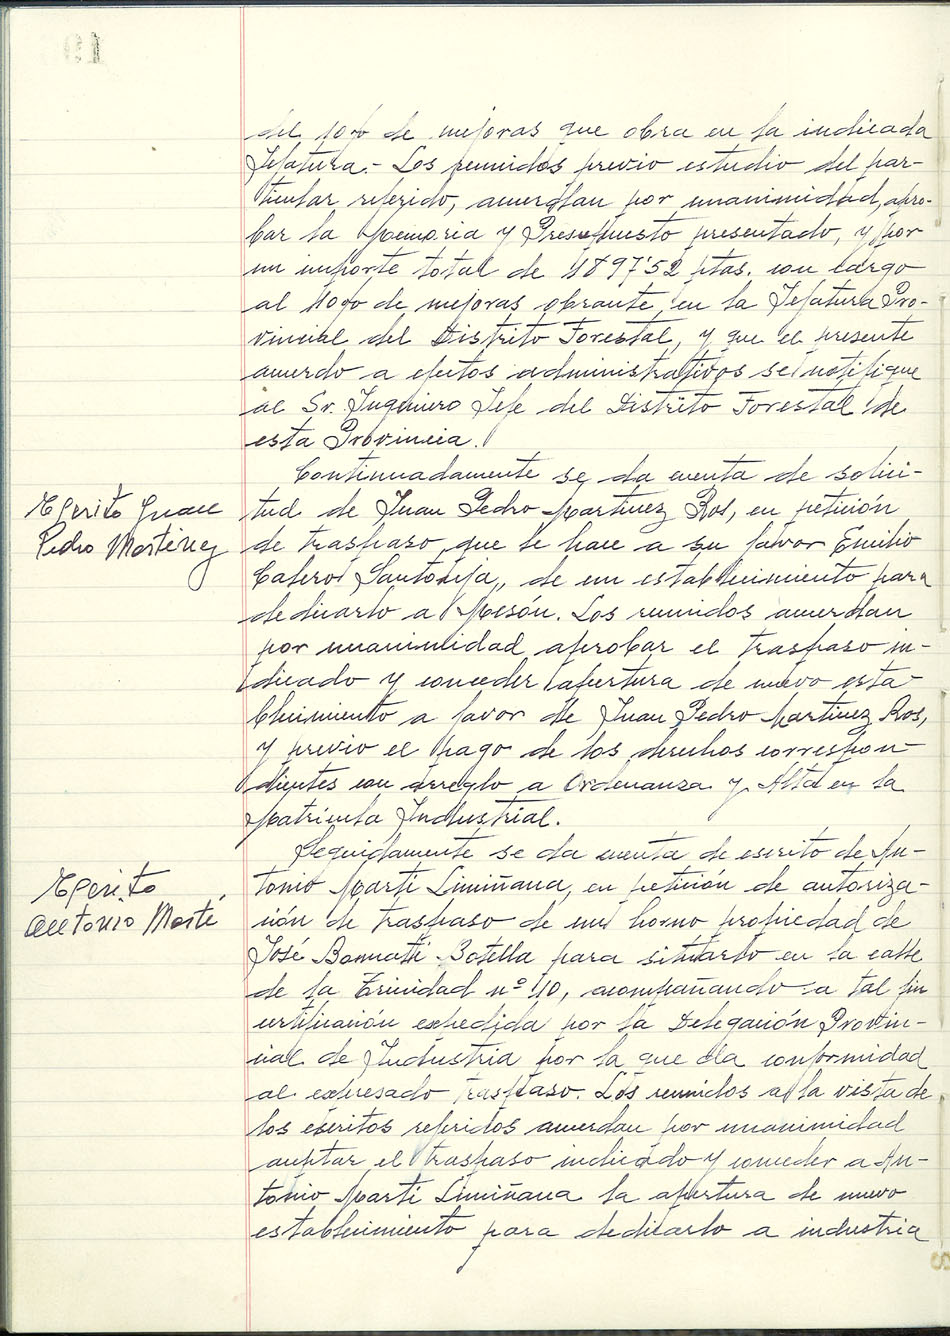 del 10% de mejoras que obra en la indicada
Jefatura.- Los reunidos previo estudio del par-
ticular referido, acuerdan por unanimidad, apro-
bar la Memoria y Presupuesto presentado, y por
un importe total de 1897'52 ptas. con cargo
al 10% de mejoras obrante en la Jefatura Pro-
vincial del Distrito Forestal, y que el presente
acuerdo a efectos administrativos se notifique
al Sr. Ingeniero Jefe del Distrito Forestal de
esta Provincia.
Continuadamente se da cuenta de solici-
Escrito Juan
Pedro Martinez
tud de Juan Pedro Martinez Ros, en petición
de traspaso que le hace a su favor Emilio
Calero Santonja, de un establecimiento para
dedicarlo a Mesón. Los reunidos acuerdan
por unanimidad aprobar el traspaso in-
dicado y conceder apertura de nuevo esta-
blecimiento a favor de Juan Pedro Martinez Ros,
y previo el pago de los derechos correspon-
dientes con arreglo a Ordenanza y Alta en la
Matrícula Industrial.
Seguidamente se da cuenta de escrito de An-
Escrito
Antonio Martí
tonio Martí Limiñana, en petición de autoriza-
ción de traspaso de un horno propiedad de
José Bonmatí Botella para situarlo en la calle
de la Trinidad nº 10, acompañando a tal fin
certificación expedida por la Delegación Provin-
cial de Industria por la que da conformidad
al expresado traspaso. Los reunidos a la vista de
los escritos referidos acuerdan por unanimidad
aceptar el traspaso indicado y conceder a An-
tonio Martí Limiñana la apertura de nuevo
establecimiento para dedicarlo a industria